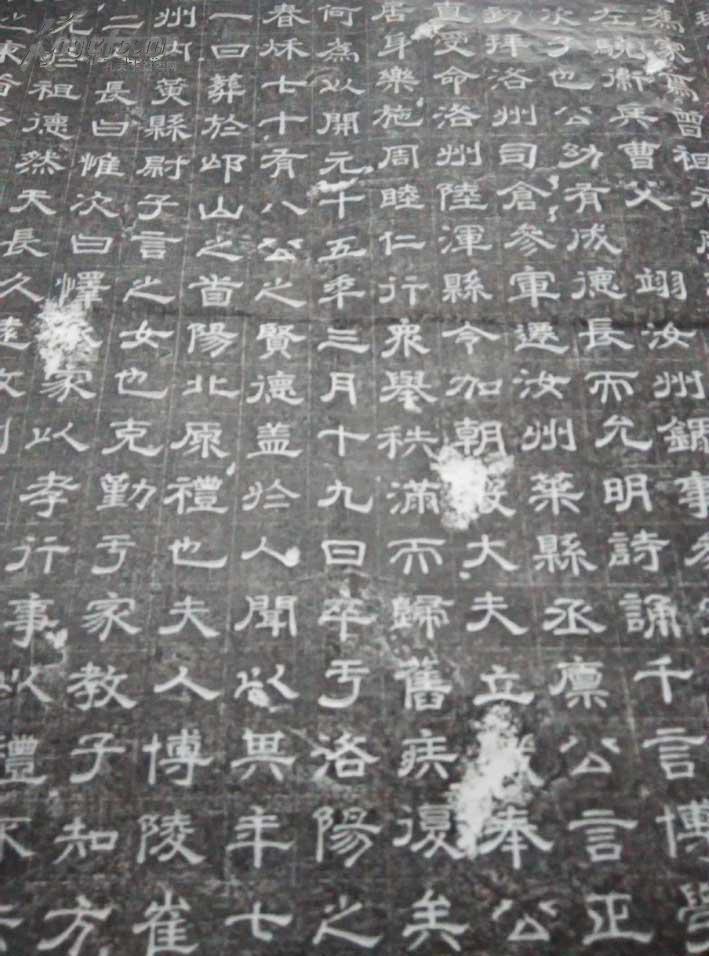 為家焉曾祖
左驍衛兵曹父翊汝州録事參
次子也公幼有成德長而允明詩誦千言博學
到拜洛州司倉參軍遷汝州葉縣丞稟公言正
直受命洛州陸渾縣令加朝大夫立奉公
居身樂施周睦仁行衆舉秩滿而歸舊疾復美
何為以開元十五年三月十九日卒于洛陽之
春秋七十有八公之賢德盖於人聞以其年七
一日葬於邙山之首陽北原禮也夫人博陵崔
州黄縣尉子言之女也克勤于家教子知方
二長曰惟次曰懌家以孝行事以禮
祖德然天長久